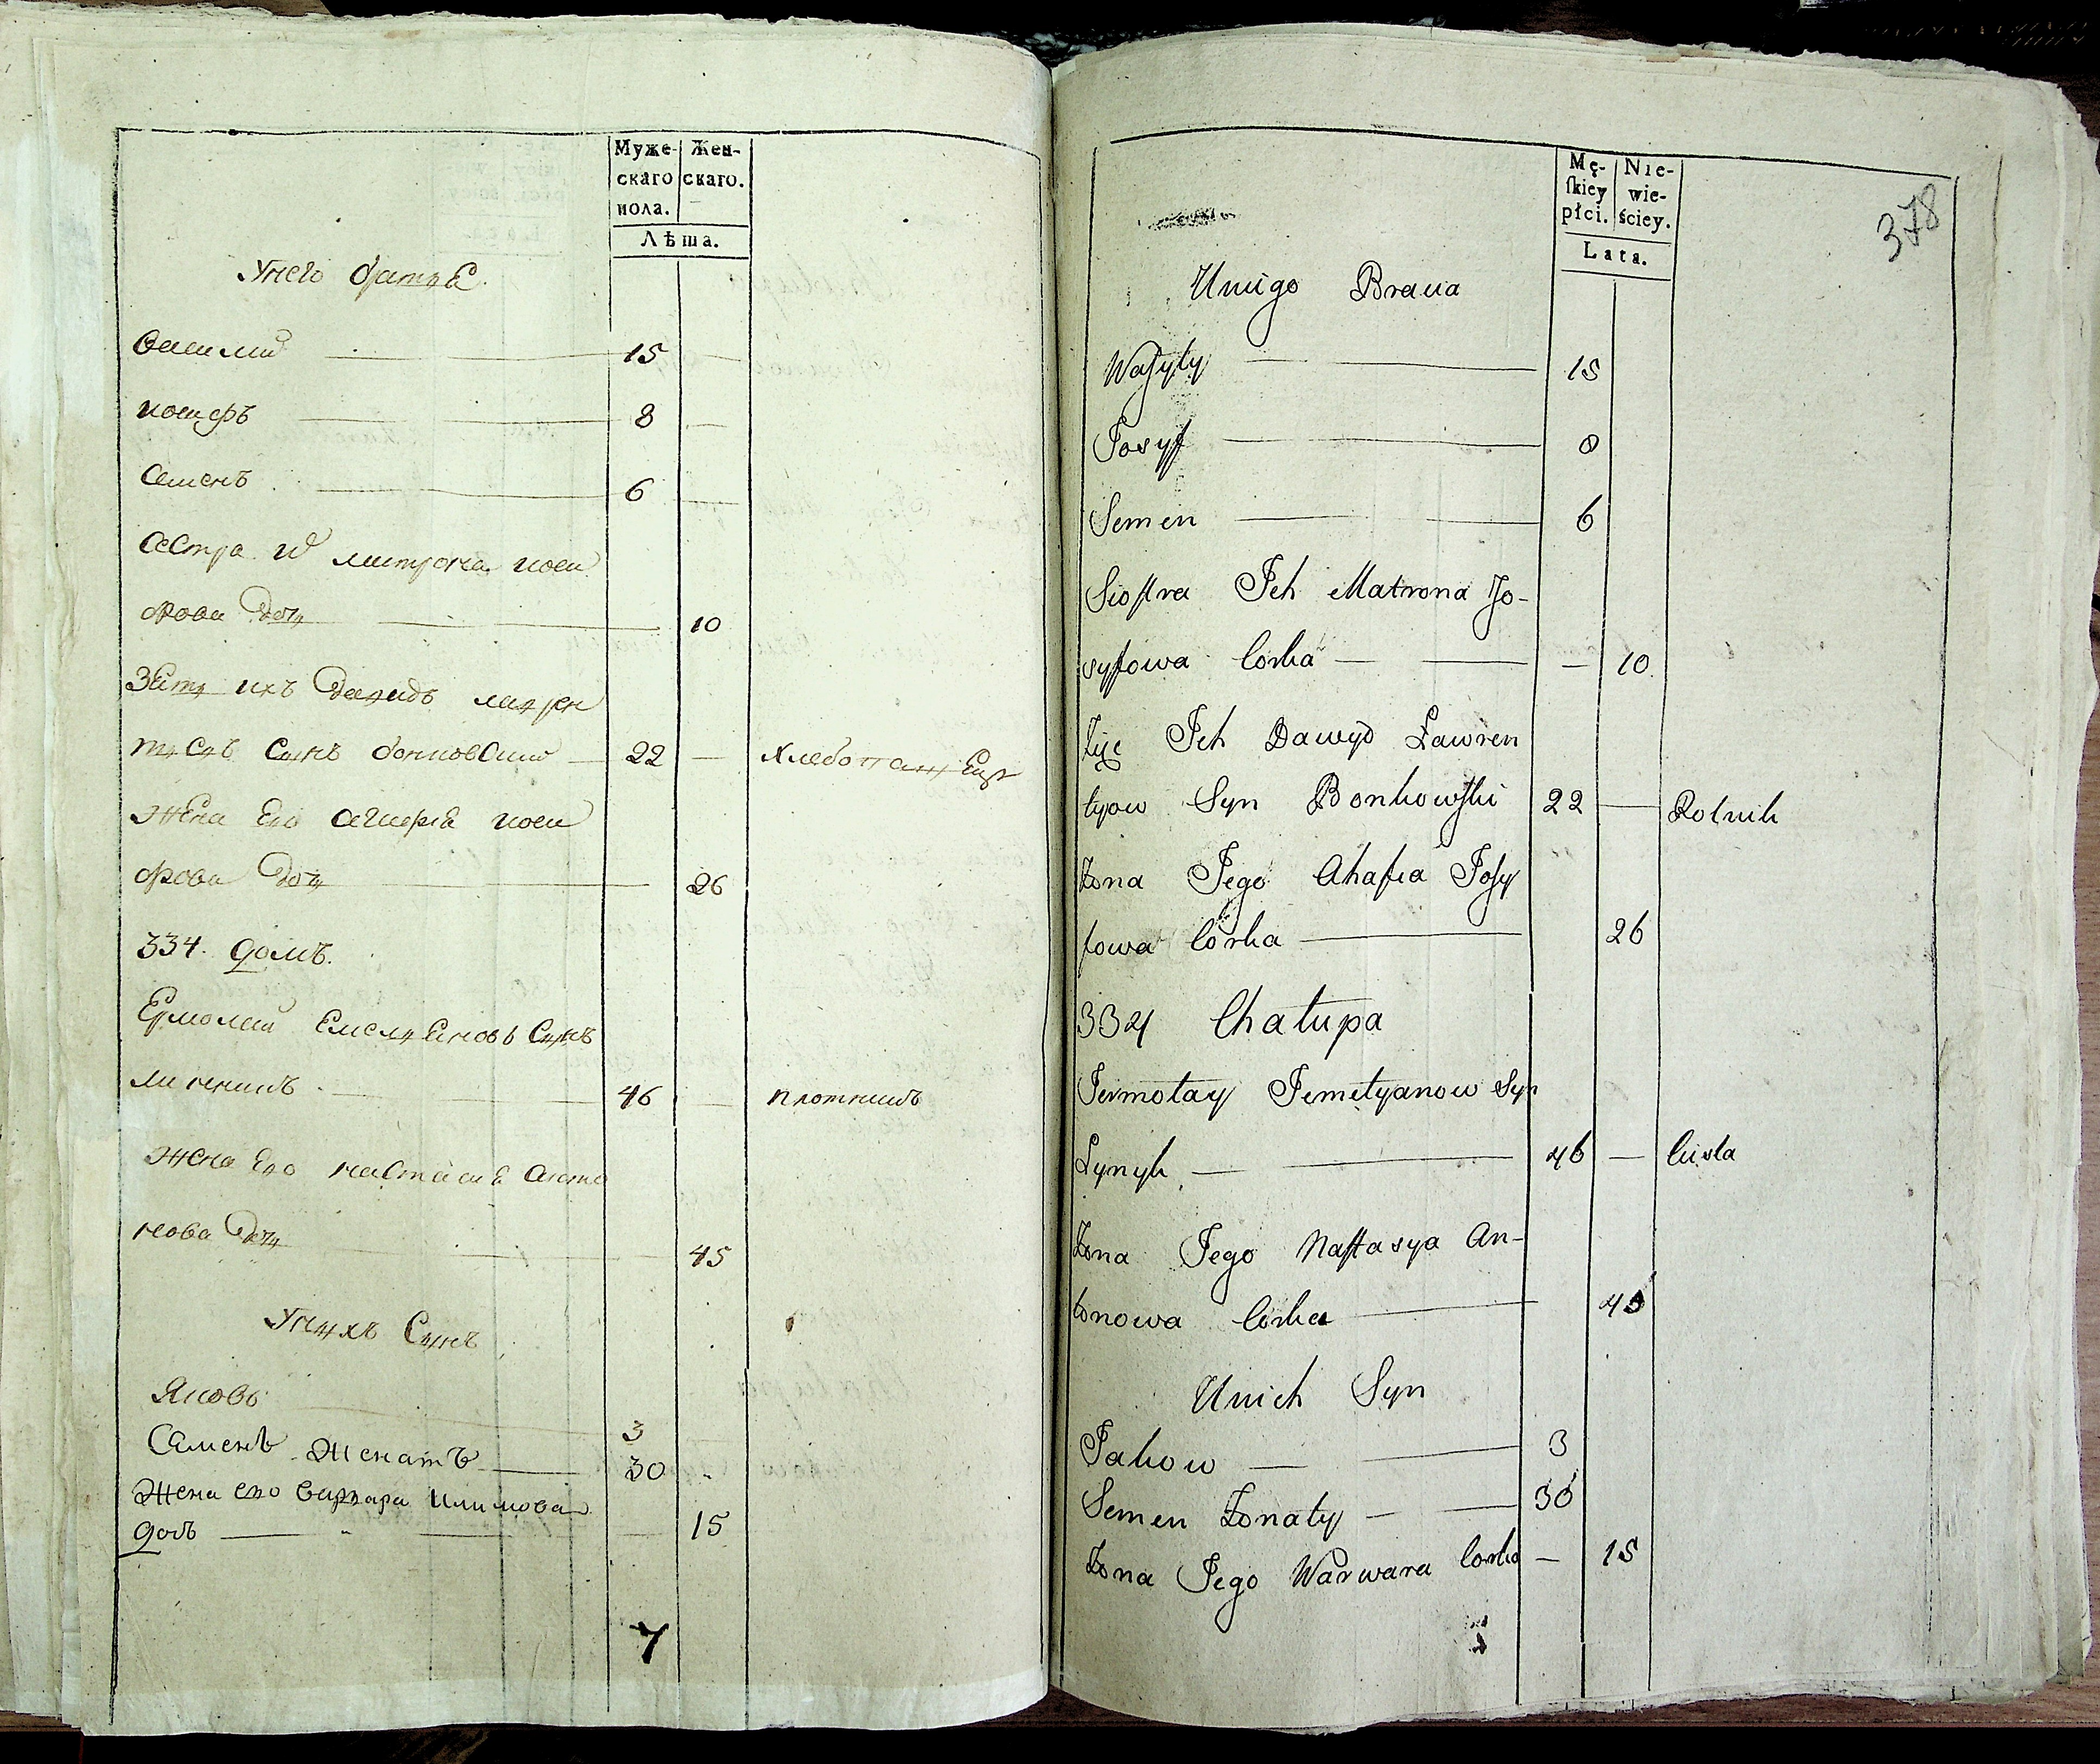 Муже- Жен-
скаго скаго.
пола.
Лѣта.
Унего братья
Василий 15
иосифъ 8
Семенъ 6
Сестра их митрона иоси
фова дочь 10
Зять ихъ Давидъ лаврен
тьевъ Сынъ бонковский 22 — хлебопашец
жена Его агафия иоси
фова дочь 26
334. домъ.
Ермолай Емельяновъ Сынъ
линникъ 46 — плотникъ
жена Его настасия анто
нова дочь 45
Унихъ Сынъ
Яковъ 3
Семенъ женатъ 30
жена его варвара
дочь 15
7
Mę- Nie-
skiey wie-
płci. ściey.
Lata.
378
Uniego Bracia
Wasyly 15
Josyf 8
Semen 6
Siostra Ich Matrona Jo-
syfowa Corka — 10
Ich Dawyd Lawren
tyow Syn Bonkowski 22 — Rolnik
Żona Jego Ahafia Josy
fowa Córka 26
334 Chałupa
Jermołay Jemelyanow Syn
Łynyk 46 — Cieśla
Żona Jego Nastasya An-
tonowa Córka 45
Unich Syn
Jakow 3
Semen Żonaty 30
Żona Jego Warwara Corka — 15